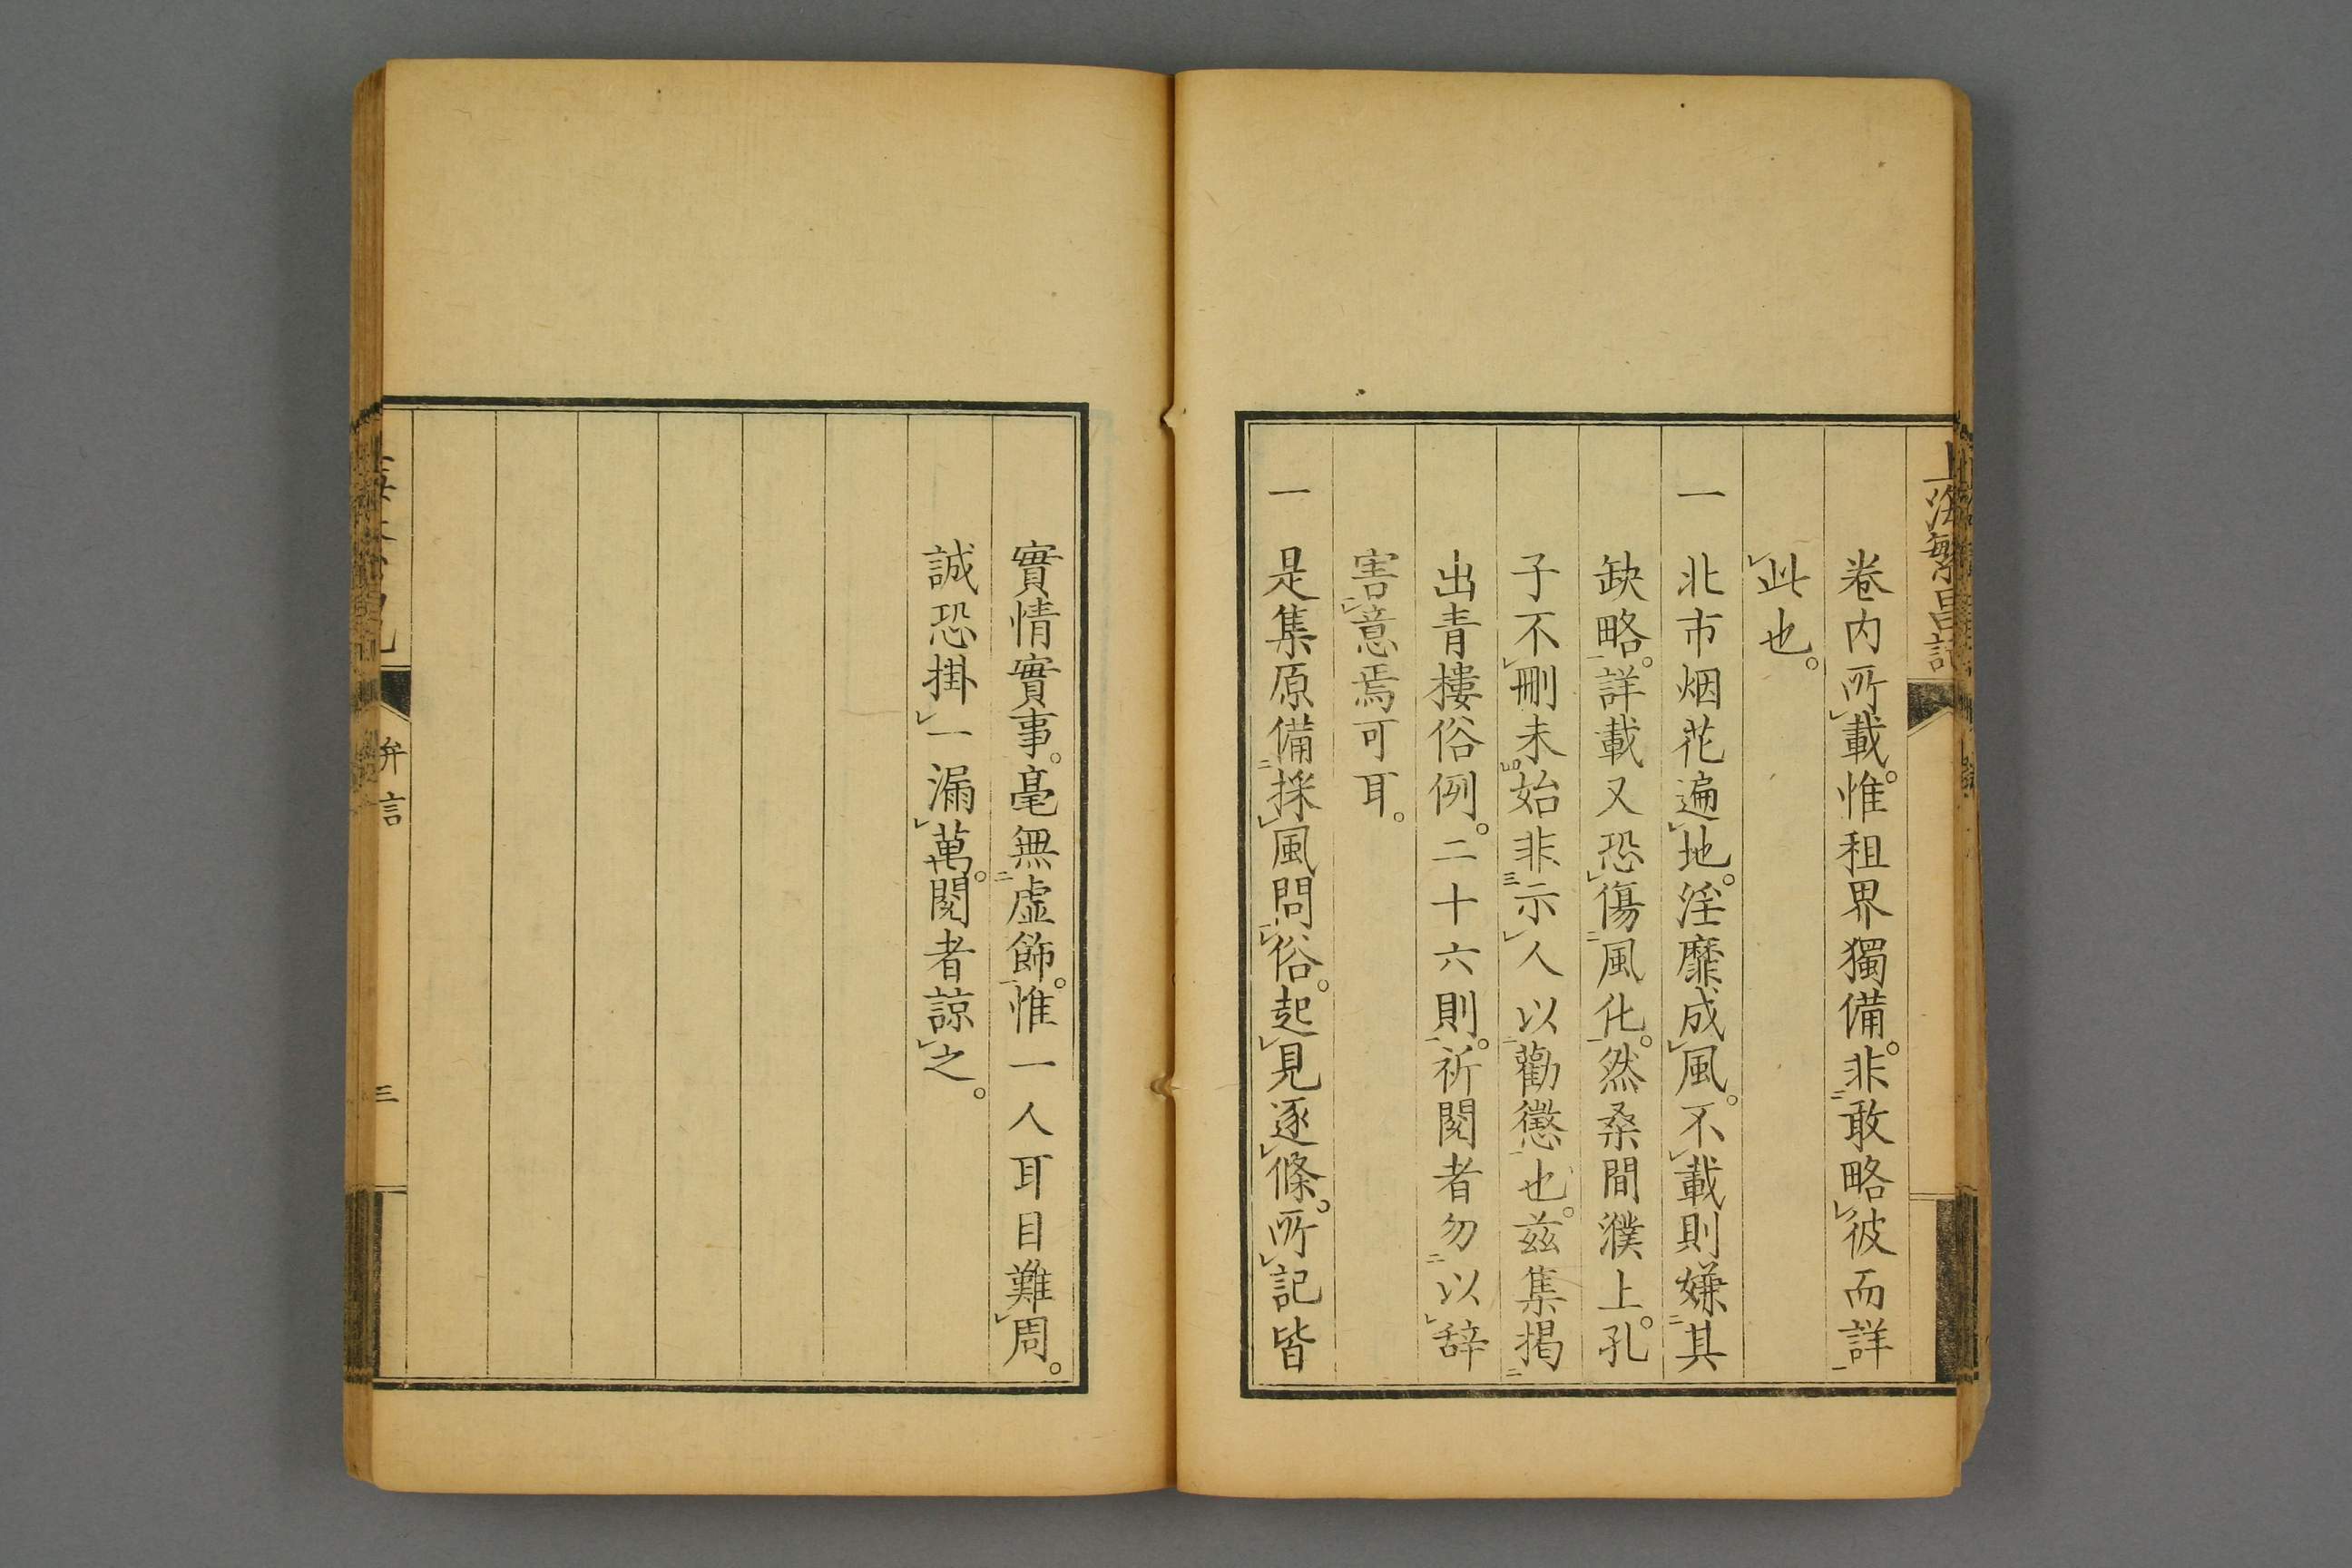 上海繁昌記
卷内所載。惟租界獨備。非敢略彼而詳
此也。
一 北市烟花遍地。淫靡成風。不載則嫌其
缺略。詳載又恐傷風化。然桑間濮上。孔
子不刪未始非示人以勸懲也。茲集揭
出青樓俗例。二十六則。祈閱者勿以辭
害意焉可耳。
一 是集原備採風問俗。起見逐條。所記皆
實情實事。毫無虛飾。惟一人耳目難周。
誠恐掛一漏萬。閱者諒之。
弁言
三